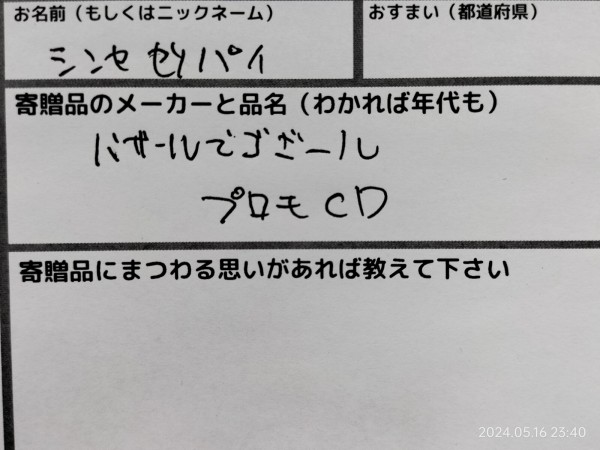 お名前（もしくはニックネーム）
おすまい（都道府県）
シンセ セリパイ
寄贈品のメーカーと品名（わかれば年代も）
バザールでゴザール
プロモCD
寄贈品にまつわる思いがあれば教えて下さい
2024.05.16 23:40